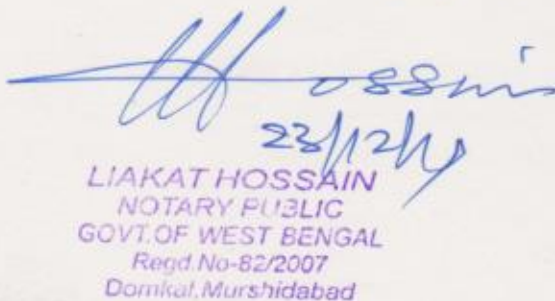 Hossain
23/12/19
LIAKAT HOSSAIN
NOTARY PUBLIC
GOVT.OF WEST BENGAL
Regd.No-82/2007
Domkal,Murshidabad